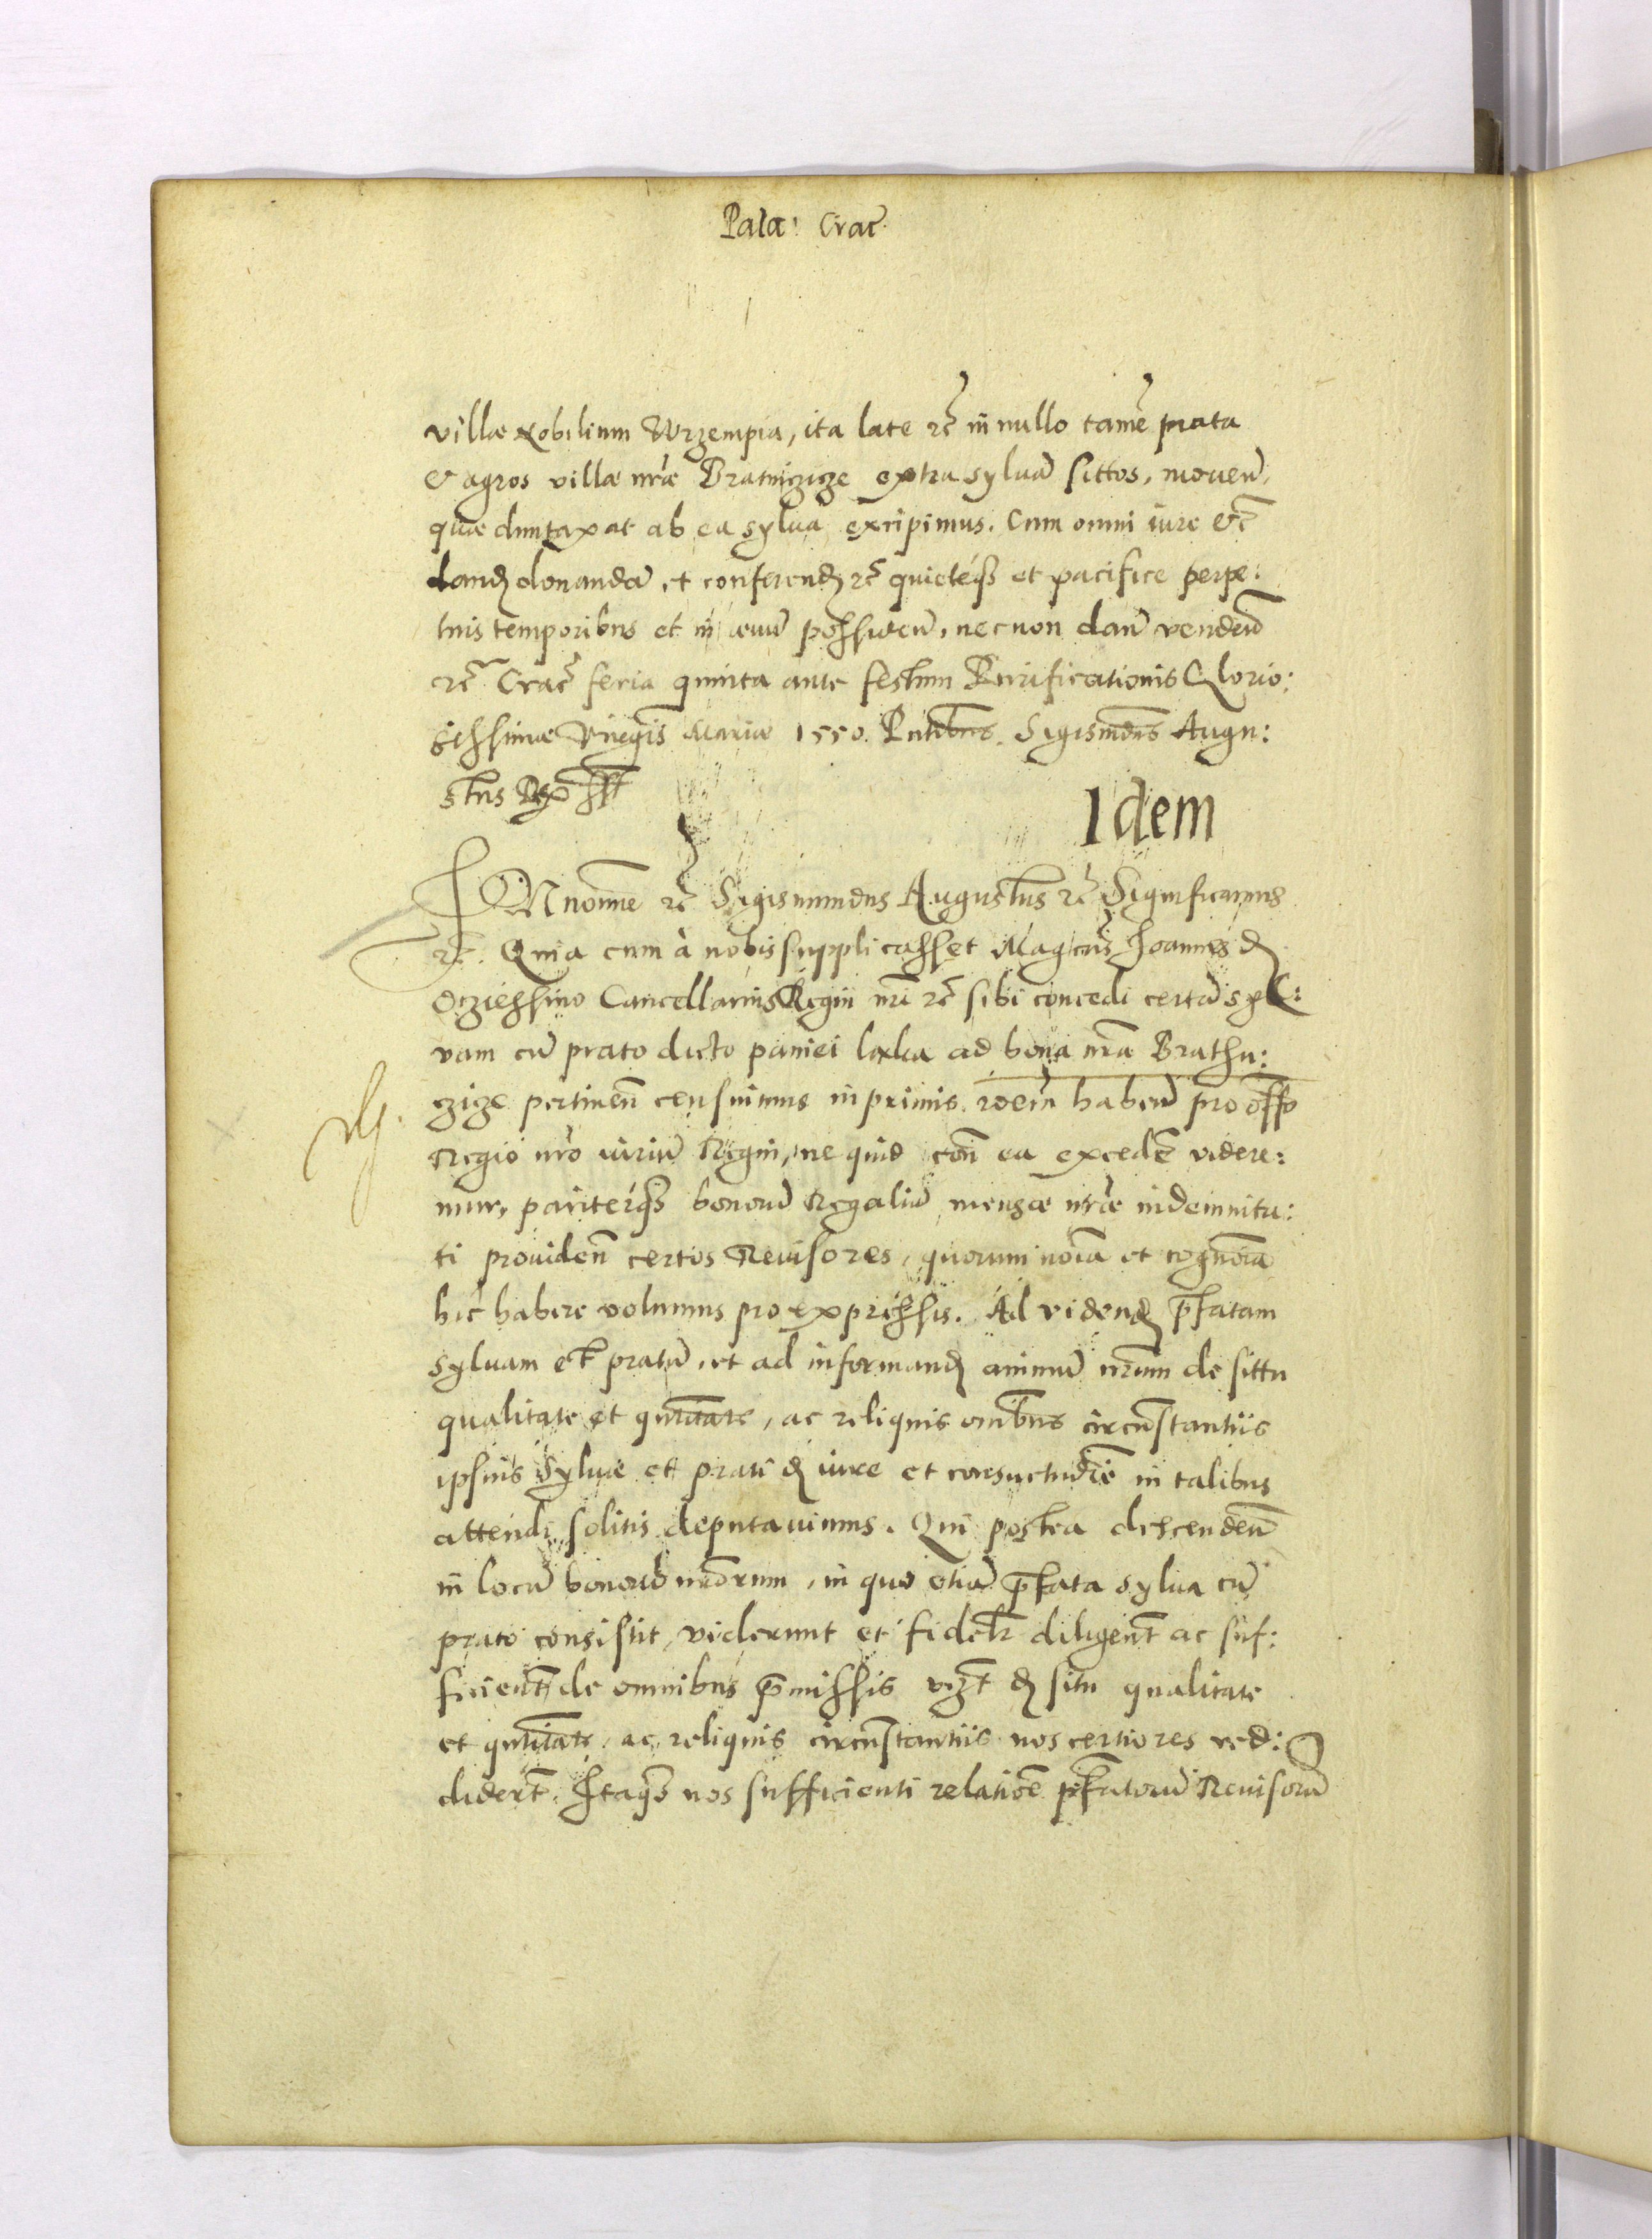 Pala: Crac̃.
villæ Nobilium Wrzempia, ita late &c̃ in nullo tamẽ prata
& agros villæ nr̃æ Bratniczicze extra syluã sittos, mouen̄,
quæ duntaxat ab ea sylua excipimus. Cum omni iure &c̃
dand̨ donandã, et conferend̨ &c̃ quieteq̃ et pacifice perpe:
tuis temporibus et in æuũ possiden̄, necnon dan̄ venden̄
&c̃ Crac̃ feria quinta ante festum Purificationis Glorio:
sissimæ Virginis Mariæ 1550. Pñtibus. Sigismũdus Augu:
stus Rex sst
Idem
IN nomine &c̃ Sigismundus Augustus &c̃ Significamus
&c̃. Quia cum à nobis supplicasset Mag̃cus Joannes d̨
Ocziessino Cancellarius Regni nr̃i &c̃ sibi concedi certã syl:
vam cũ prato dicto paniei laka ad bona nr̃a Brathu:
czicze pertinen̄ censuimus inprimis roẽm habend pro offo
Regio nr̃o iuriũ Regni, ne quid con̄ ea excedẽ videre:
mur, pariterq̃ bonorũ Regaliũ mensæ nr̃æ indemnita:
ti prouiden̄ certos Reuisores, quorum noĩa et cognoĩa
hic habere volumus pro expressis. Ad vidend̨ p̄fatam
syluam et pratũ, et ad informand̨ animũ nr̃um de sittu
qualitate et qntitate, ac reliquis omĩbus circũstantiis
ipsius Syluæ et prati d̨ iure et consuetudĩe in talibus
attendi solitis deputauimus. Qui postea descenden̄
in locũ bonorũ nr̃orum, in quo etiã p̄fata sylua cũ
prato consistit, viderunt et fidelr̃ diligent̃ ac suf:
ficient̃ de omnibus p̄missis vzt̃ d̨ situ qualitate
et qntitate, ac reliquis circũstantiis nos certiores red:
didert̃. Itaq̃ nos sufficienti relatiõe p̄fatorũ Reuisorũ